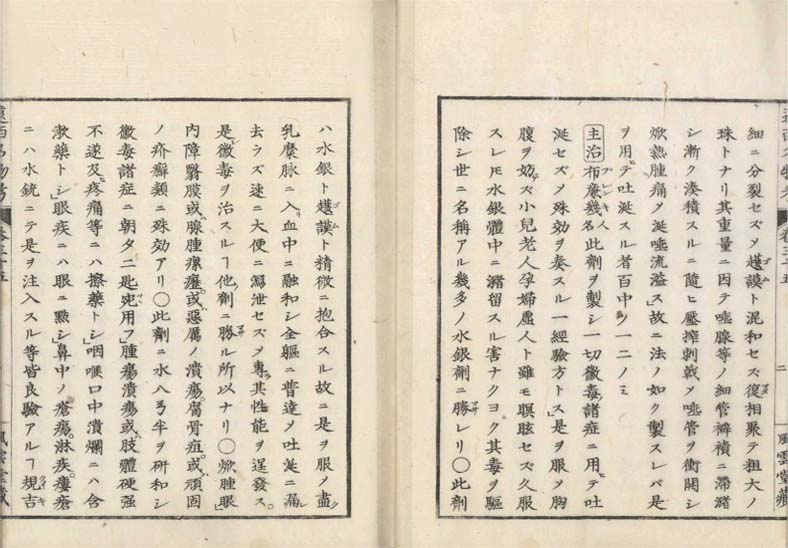 細ニ分裂セズ〆謨ト混和セズ復相聚テ粗大ノ
珠トナリ其重量ニ因テ唾腺等ノ細管襞積ニ滯瀦
シ漸ク湊積スルニ隨ヒ壓搾刺戟〆唾管ヲ衝開シ
焮熱腫痛〆涎唾流溢ス故ニ法ノ如ク製スレバ是
ヲ用テ吐涎スル者百中ノ一二ノミ
主治 布廉幾人名此劑ヲ製シ一切黴毒諸症ニ用テ吐
涎セズ〆殊効ヲ奏スル一經驗方トス是ヲ服〆胸
腹ヲ妨ズ小兒老人孕婦虛人ト雖モ瞑眩セズ久服
スレ𪜈水銀體中ニ瀦留スル害ナクヨク其毒ヲ驅
除シ世ニ名稱アル幾多ノ水銀劑ニ勝レリ○此劑
ハ水銀ト謨ト精微ニ抱合スル故ニ是ヲ服〆盡ク
乳糜脉ニ入リ血中ニ融和シ全軀ニ普達〆吐涎ニ漏
去ラズ速ニ大便ニ瀉泄セズ〆專其性能ヲ逞發ス
是黴毒ヲ治スルヿ他劑ニ勝ル所以ナリ○焮腫眼
内障翳膜或腺腫瘰癧或惡厲ノ潰瘍腐骨疽或頑固
ノ疥癬類ニ殊効アリ○此劑ニ水八弓半ヲ研和シ
黴毒諸症ニ朝夕二匙宛用フ腫瘍潰瘍或肢體硬强
不遂及疼痛等ニハ擦藥トシ咽喉口中潰爛ニハ含
漱藥トシ眼疾ニハ眼ニ㸃シ鼻中ノ瘡瘍淋疾瘻瘡
ニハ水銃ニテ是ヲ注入スル等皆良驗アルヿ規吉
西名物考 卷三十五
二
風雲堂藏